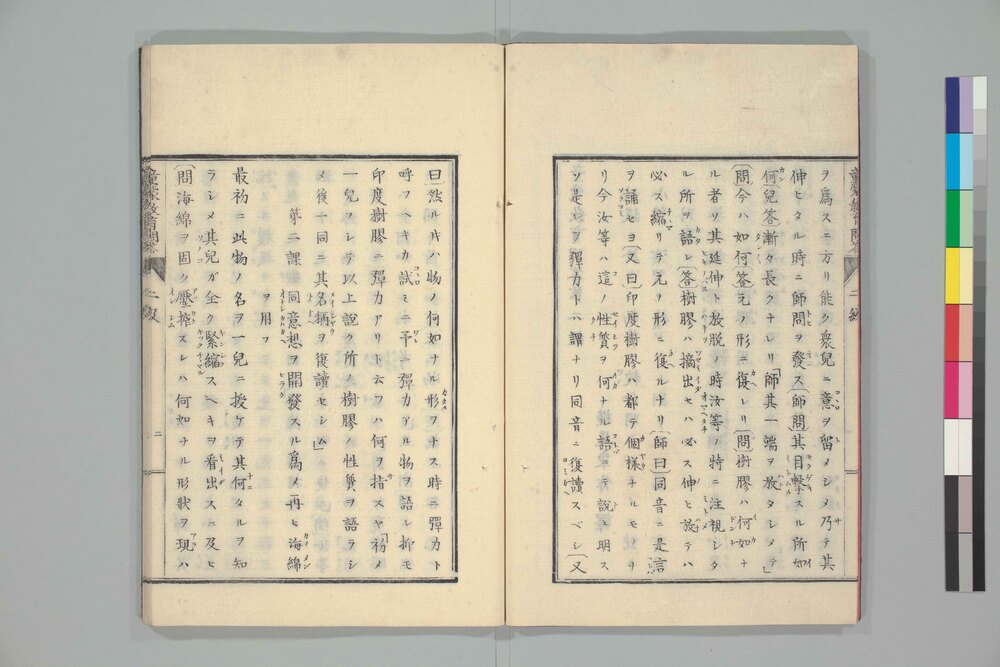 ヲ爲スニ方リ能ク衆兒ニ意ヲ留メシメ乃チ其
伸ヒタル時ニ師問ヲ發ス〔師問〕其目撃スル所如
何〔兒答〕漸々長クナレリ「師其一端ヲ放タシメテ」
〔問〕今ハ如何〔答〕元ノ形ニ復レリ〔問〕樹膠ハ何如ナ
ル者ソ其延伸ト放脱ノ時汝等ノ特ニ注視シタ
ル所ヲ語レ〔答〕樹膠ハ摘出セハ必ス伸ヒ放テハ
必ス縮リテ元ノ形ニ復ルナリ〔師曰〕同音ニ是言
ヲ誦セヨ〔又曰〕印度樹膠ハ都テ個様ナルモノナ
リ今汝等ハ這ノ性質ヲ何ナル語ニテ説キ明ス
ソ是レヲ彈力トハ謂ナリ同音ニ復讀スベシ〔又
曰〕然ル片ハ物ノ何如ナル形ヲナス時ニ彈力ト
呼フヘキカ試ミニ予ニ彈力アル物ヲ語レ抑モ
印度樹膠ニ彈力アリト云フハ何ヲ指スヤ「初メ
一兒ヲシテ以上説ク所ノ樹膠ノ性質ヲ語ラシ
メ後一同ニ其名稱ヲ復讀セシム」
第二課 同意想ヲ開發スル爲メ再ヒ海綿
ヲ用フ
最初ニ此物ノ名ヲ一兒ニ授ケテ其何タルヲ知
ラシメ其兒ガ全ク緊縮スヘキヲ看出スニ及ヒ
〔問〕海綿ヲ固ク壓搾スレハ何如ナル形狀ヲ現ハ
二